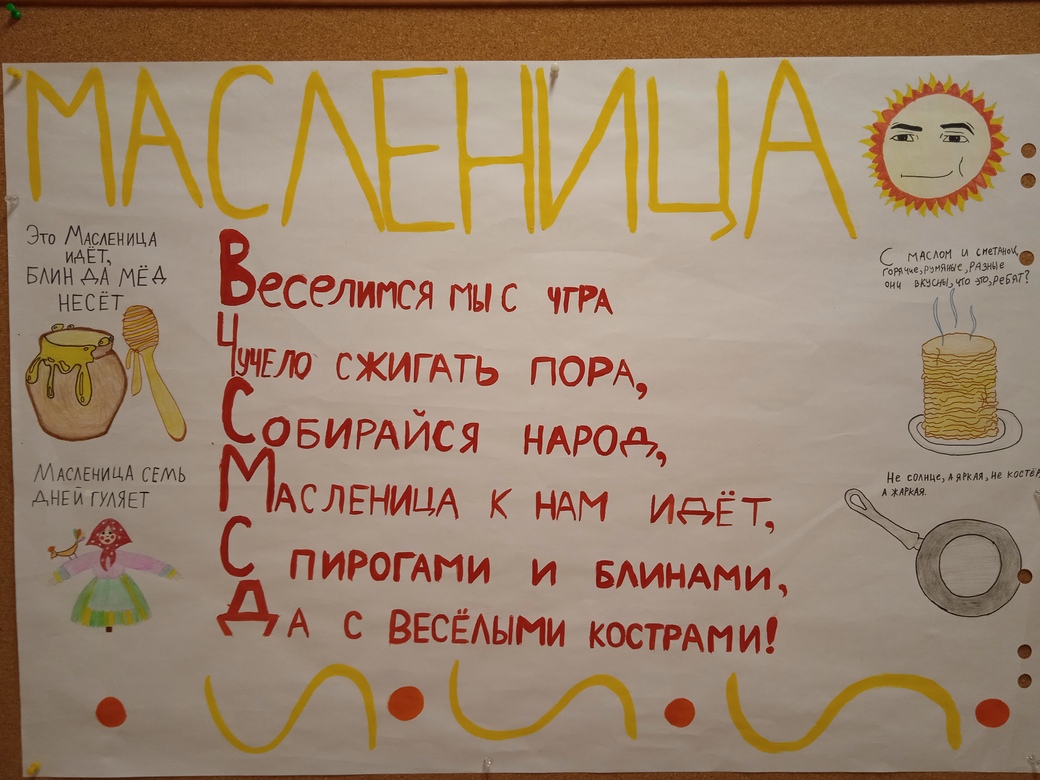 МАСЛЕНИЦА
Это Масленица
идёт,
блин да мёд
несёт
Масленица семь
дней гуляет
Веселимся мы с чтра
Чучело сжигать пора,
Собирайся народ,
Масленица к нам идёт,
С пирогами и блинами,
Да с весёлыми кострами!
С маслом и сметаной,
горячие, румяные, разные
они вкусны, что это, ребят?
Не солнце, а яркая, не костёр,
а жаркая.